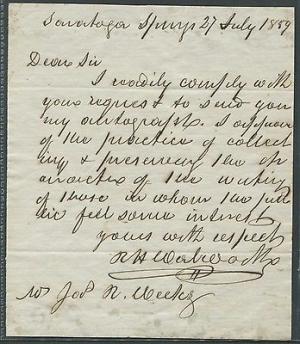 Saratoga Springs 27 July 1859
Dear Sir
I readily comply with
your request & to send you
my autograph. I approve
of the practice of collect
ing & preserving the
of the writing
of those in whom the pub
lic feel some interest
yours with respect
R H Walworth
Mr Jos N. Weeks